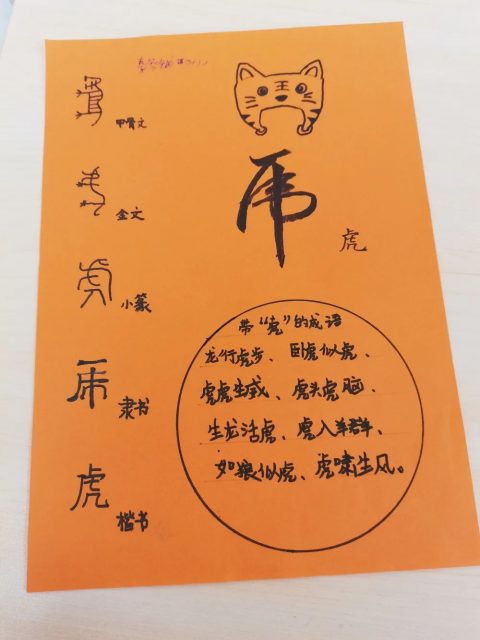 王
虎
虎
虎 甲骨文
虎 金文
虎 小篆
虎 隶书
虎 楷书
带“虎”的成语
龙行虎步、卧虎似虎、
虎虎生威、虎头虎脑、
生龙活虎、虎入羊群、
如狼似虎、虎啸生风。